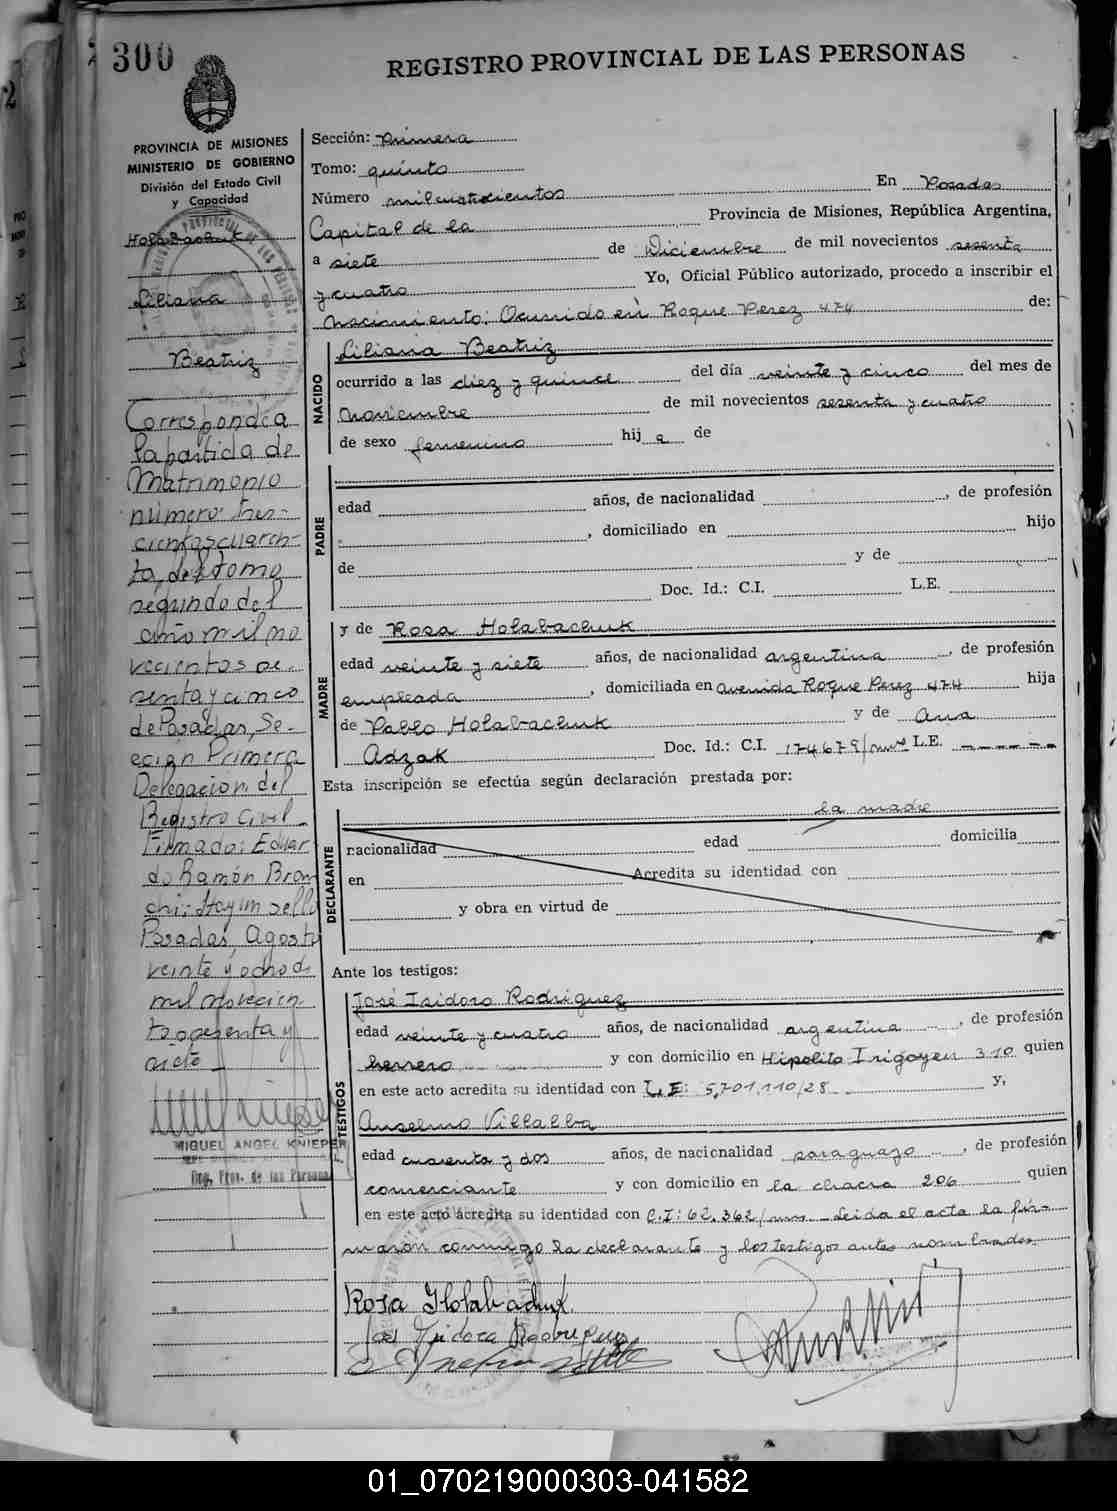 300
REGISTRO PROVINCIAL DE LAS PERSONAS
PROVINCIA DE MISIONES
MINISTERIO DE GOBIERNO
División del Estado Civil
y Capacidad
Holabachuk
Liliana
Beatriz
Corresponde a
la partida de
Matrimonio
número: tres-
cientos cuaren-
ta, del tomo
segundo del
año mil no
vecientos se-
senta y cinco
de Posadas, Se-
cción Primera
Delegación del
Registro Civil
Firmado: Eduar
do Ramón
chi; Hay un sello
Posadas, Agosto
veinte y ocho de
mil novecien
tos sesenta y
siete
MIGUEL ANGEL KNIEPER
Reg. Prov. de las Personas
Sección: Primera
Tomo: quinto
Número milcuatrocientos En Posadas
Capital de la Provincia de Misiones, República Argentina,
a siete de Diciembre de mil novecientos sesenta
y cuatro Yo, Oficial Público autorizado, procedo a inscribir el
nacimiento: Ocurrido en Roque Perez 474 de:
NACIDO
Liliana Beatriz
ocurrido a las diez y quince del día veinte y cinco del mes de
noviembre de mil novecientos sesenta y cuatro
de sexo femenino hij a de
PADRE
edad años, de nacionalidad , de profesión
, domiciliado en hijo
de y de
Doc. Id.: C.I. L.E.
MADRE
y de Rosa Holabachuk
edad veinte y siete años, de nacionalidad argentina , de profesión
empleada , domiciliada en avenida Roque Perez 474 hija
de Pablo Holabachuk y de Ana
Adzak Doc. Id.: C.I. 174679/mns L.E. ------
Esta inscripción se efectúa según declaración prestada por:
la madre
DECLARANTE
nacionalidad edad domicilia
en Acredita su identidad con
y obra en virtud de
Ante los testigos:
TESTIGOS
José Isidoro Rodriguez
edad veinte y cuatro años, de nacionalidad argentina , de profesión
herrero y con domicilio en Hipolito Irigoyen 310 quien
en este acto acredita su identidad con L.E: 5,701,110/28 y,
Anselmo Villalba
edad cuarenta y dos años, de nacionalidad paraguayo , de profesión
comerciante y con domicilio en la chacra 206 quien
en este acto acredita su identidad con C.I: 62.362/mns - Leida el acta la fir-
maron conmigo la declarante y los testigos antes nombrados.
Rosa Holabachuk.
01_070219000303-041582